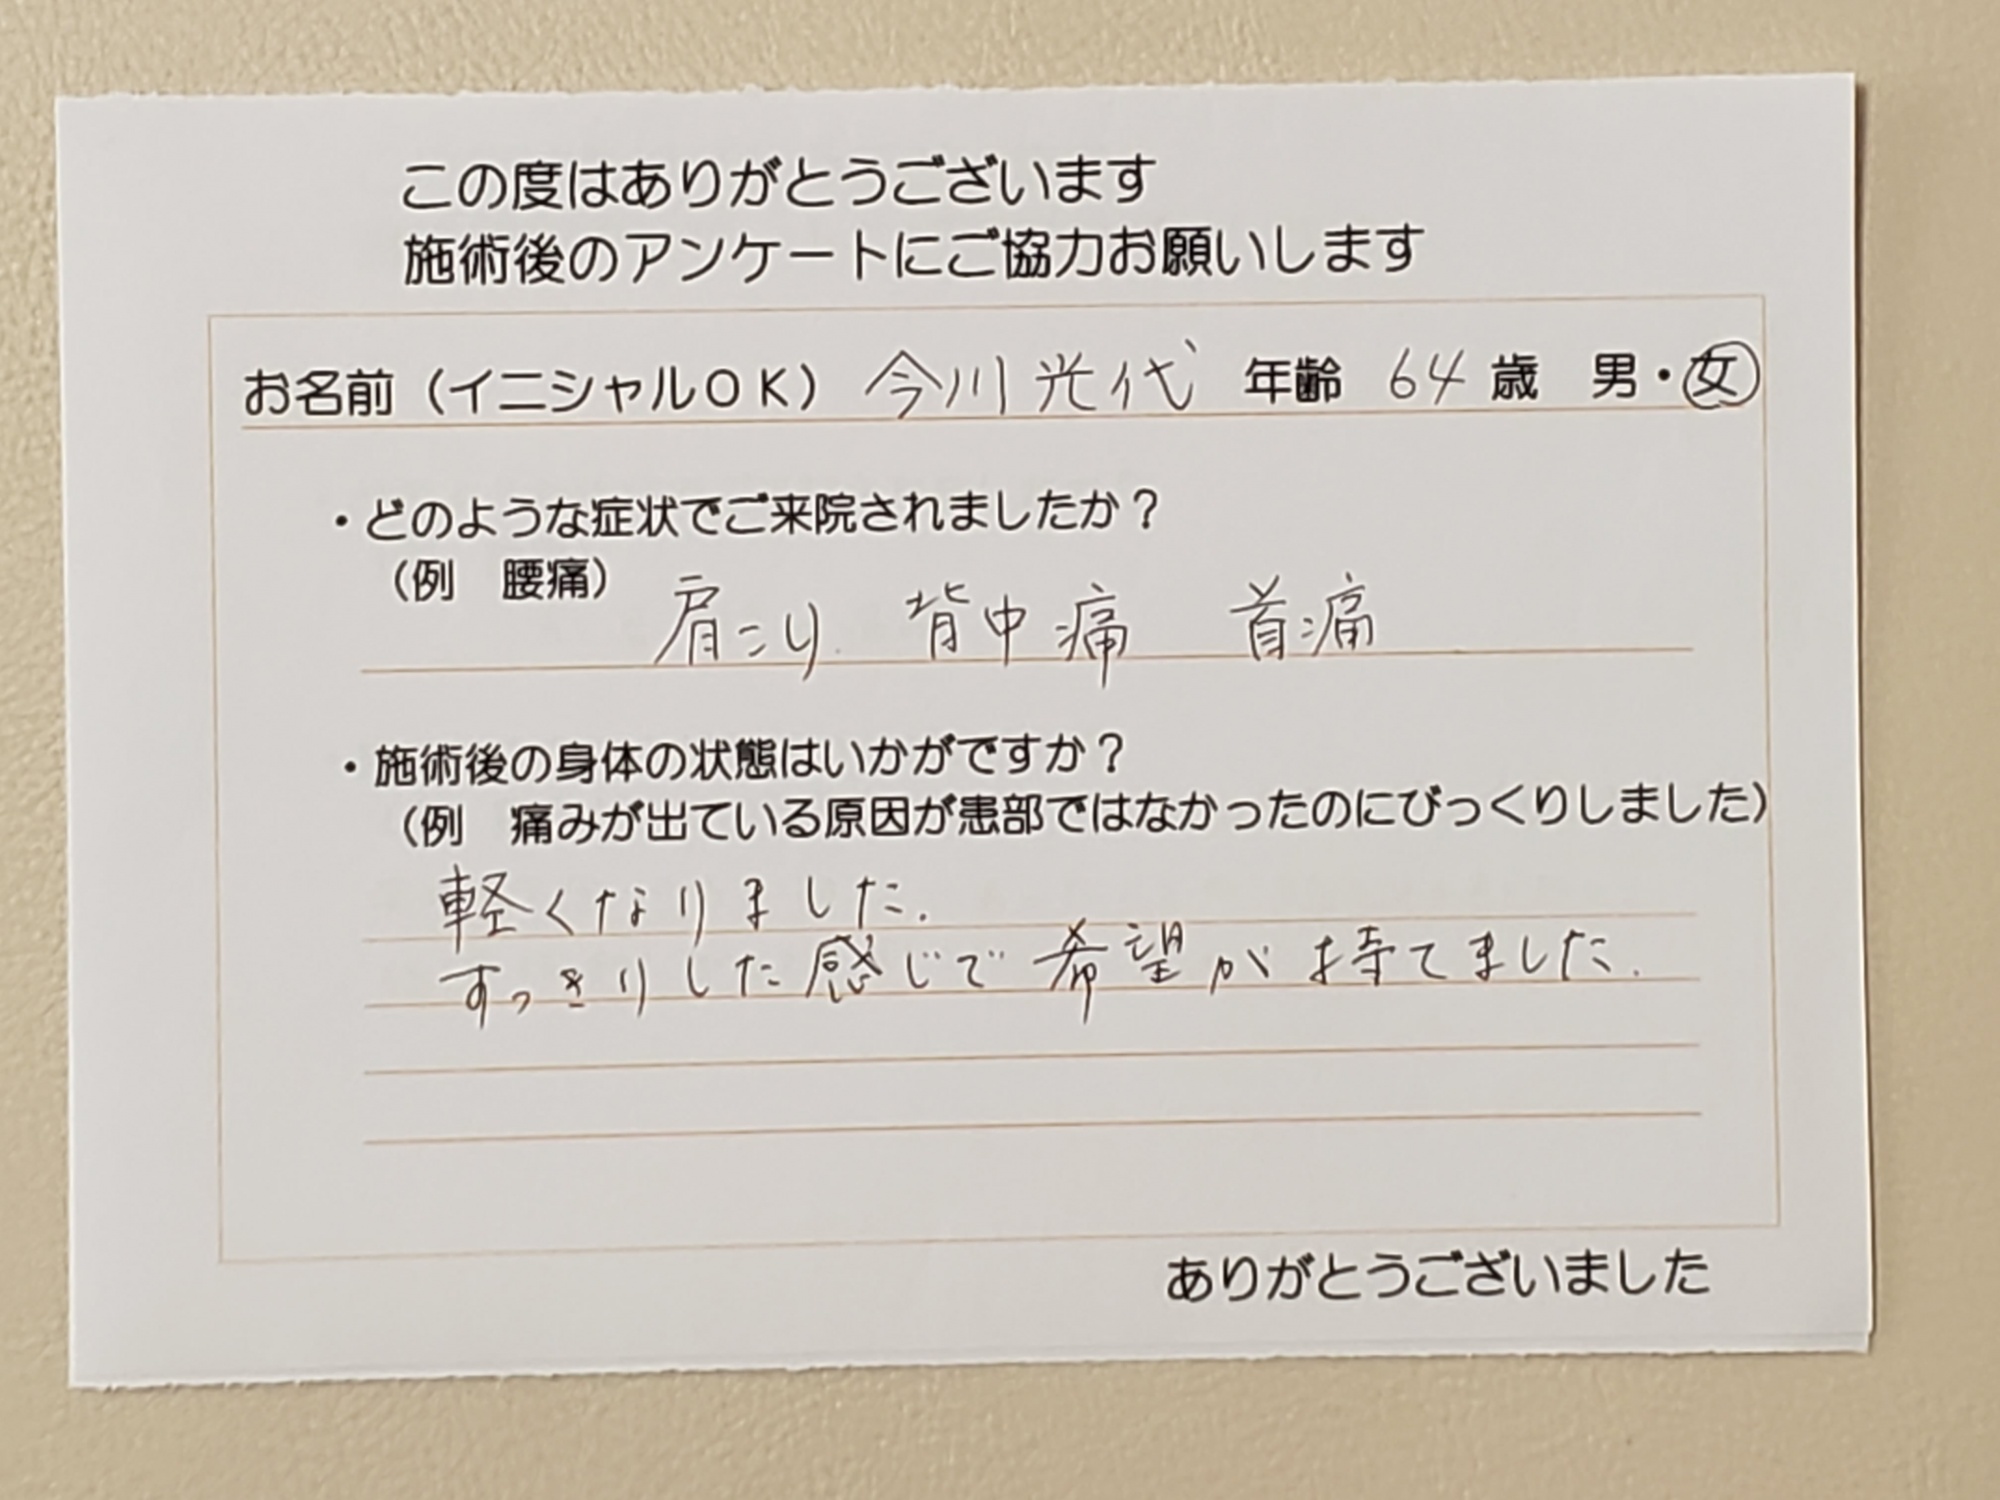 この度はありがとうございます
施術後のアンケートにご協力お願いします
お名前（イニシャルＯＫ） 今川光代 年齢 64 歳 男・女
・どのような症状でご来院されましたか？
（例 腰痛）
肩こり 背中痛 首痛
・施術後の身体の状態はいかがですか？
（例 痛みが出ている原因が患部ではなかったのにびっくりしました）
軽くなりました.
すっきりした感じで希望が持てました.
ありがとうございました